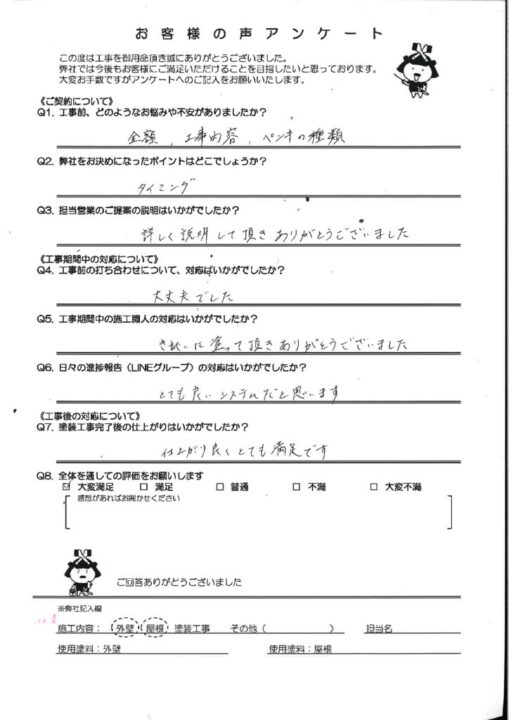 お客様の声アンケート
この度は工事を御用命頂き誠にありがとうございました。
弊社では今後もお客様にご満足いただけることを目指したいと思っております。
大変お手数ですがアンケートへのご記入をお願いいたします。
《ご契約について》
Q1. 工事前、どのようなお悩みや不安がありましたか?
金額、工事内容、ペンキの種類
Q2. 弊社をお決めになったポイントはどこでしょうか?
タイミング
Q3. 担当営業のご提案の説明はいかがでしたか?
詳しく説明して頂きありがとうございました
《工事期間中の対応について》
Q4. 工事前の打ち合わせについて、対応はいかがでしたか?
大丈夫でした
Q5. 工事期間中の施工職人の対応はいかがでしたか?
きれいに塗って頂きありがとうございました
Q6. 日々の進捗報告(LINEグループ)の対応はいかがでしたか?
とても良いシステムだと思います
《工事後の対応について》
Q7. 塗装工事完了後の仕上がりはいかがでしたか?
仕上がり良くとても満足です
Q8. 全体を通しての評価をお願いします
☑ 大変満足 □ 満足 □ 普通 □ 不満 □ 大変不満
感想があればお聞かせください
ご回答ありがとうございました
※弊社記入欄
施工内容: 外壁 屋根 塗装工事 その他( ) 担当名
使用塗料:外壁 使用塗料:屋根